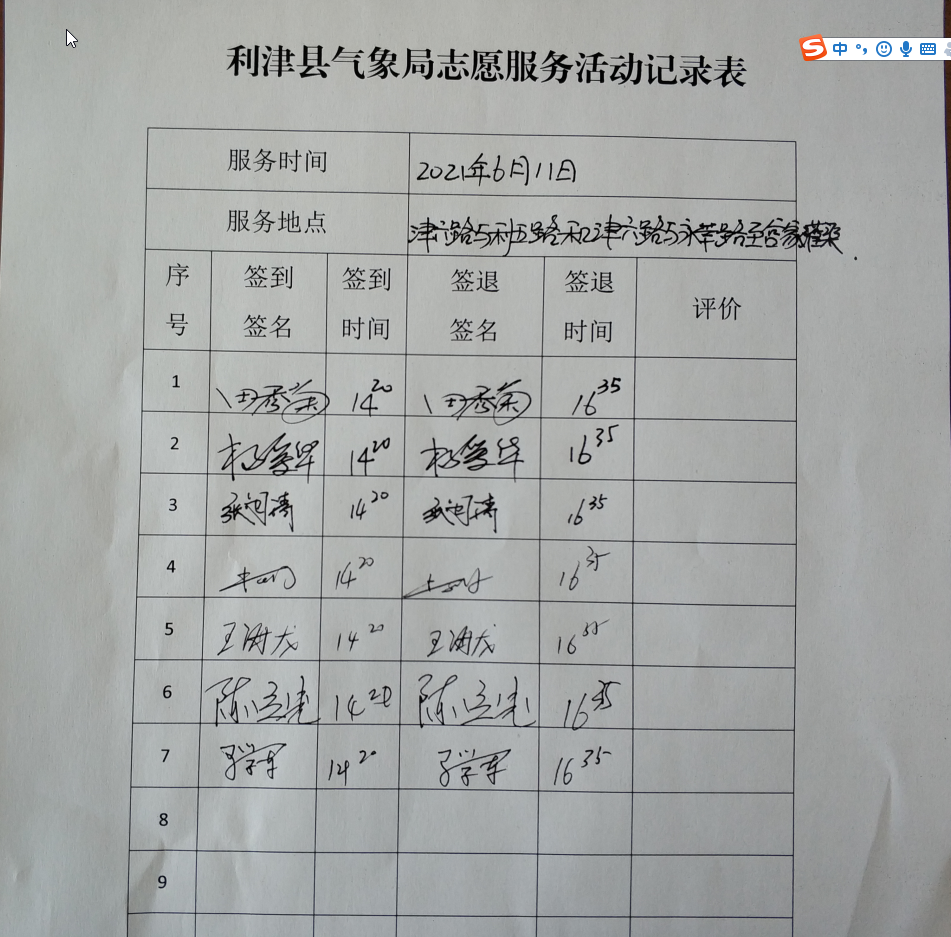 中
利津县气象局志愿服务活动记录表
服务时间 2021年6月11日
服务地点 津六路与利五路和津六路与永莘路至
序号 签到签名 签到时间 签退签名 签退时间 评价
1 田秀菊 14 20 田秀菊 16 35
2 杨学华 14 20 杨学华 16 35
3 14 20 16 35
4 14 20 16 35
5 王 龙 14 20 王 龙 16 35
6 陈立建 14 20 陈立建 16 35
7 学军 14 20 学军 16 35
8
9